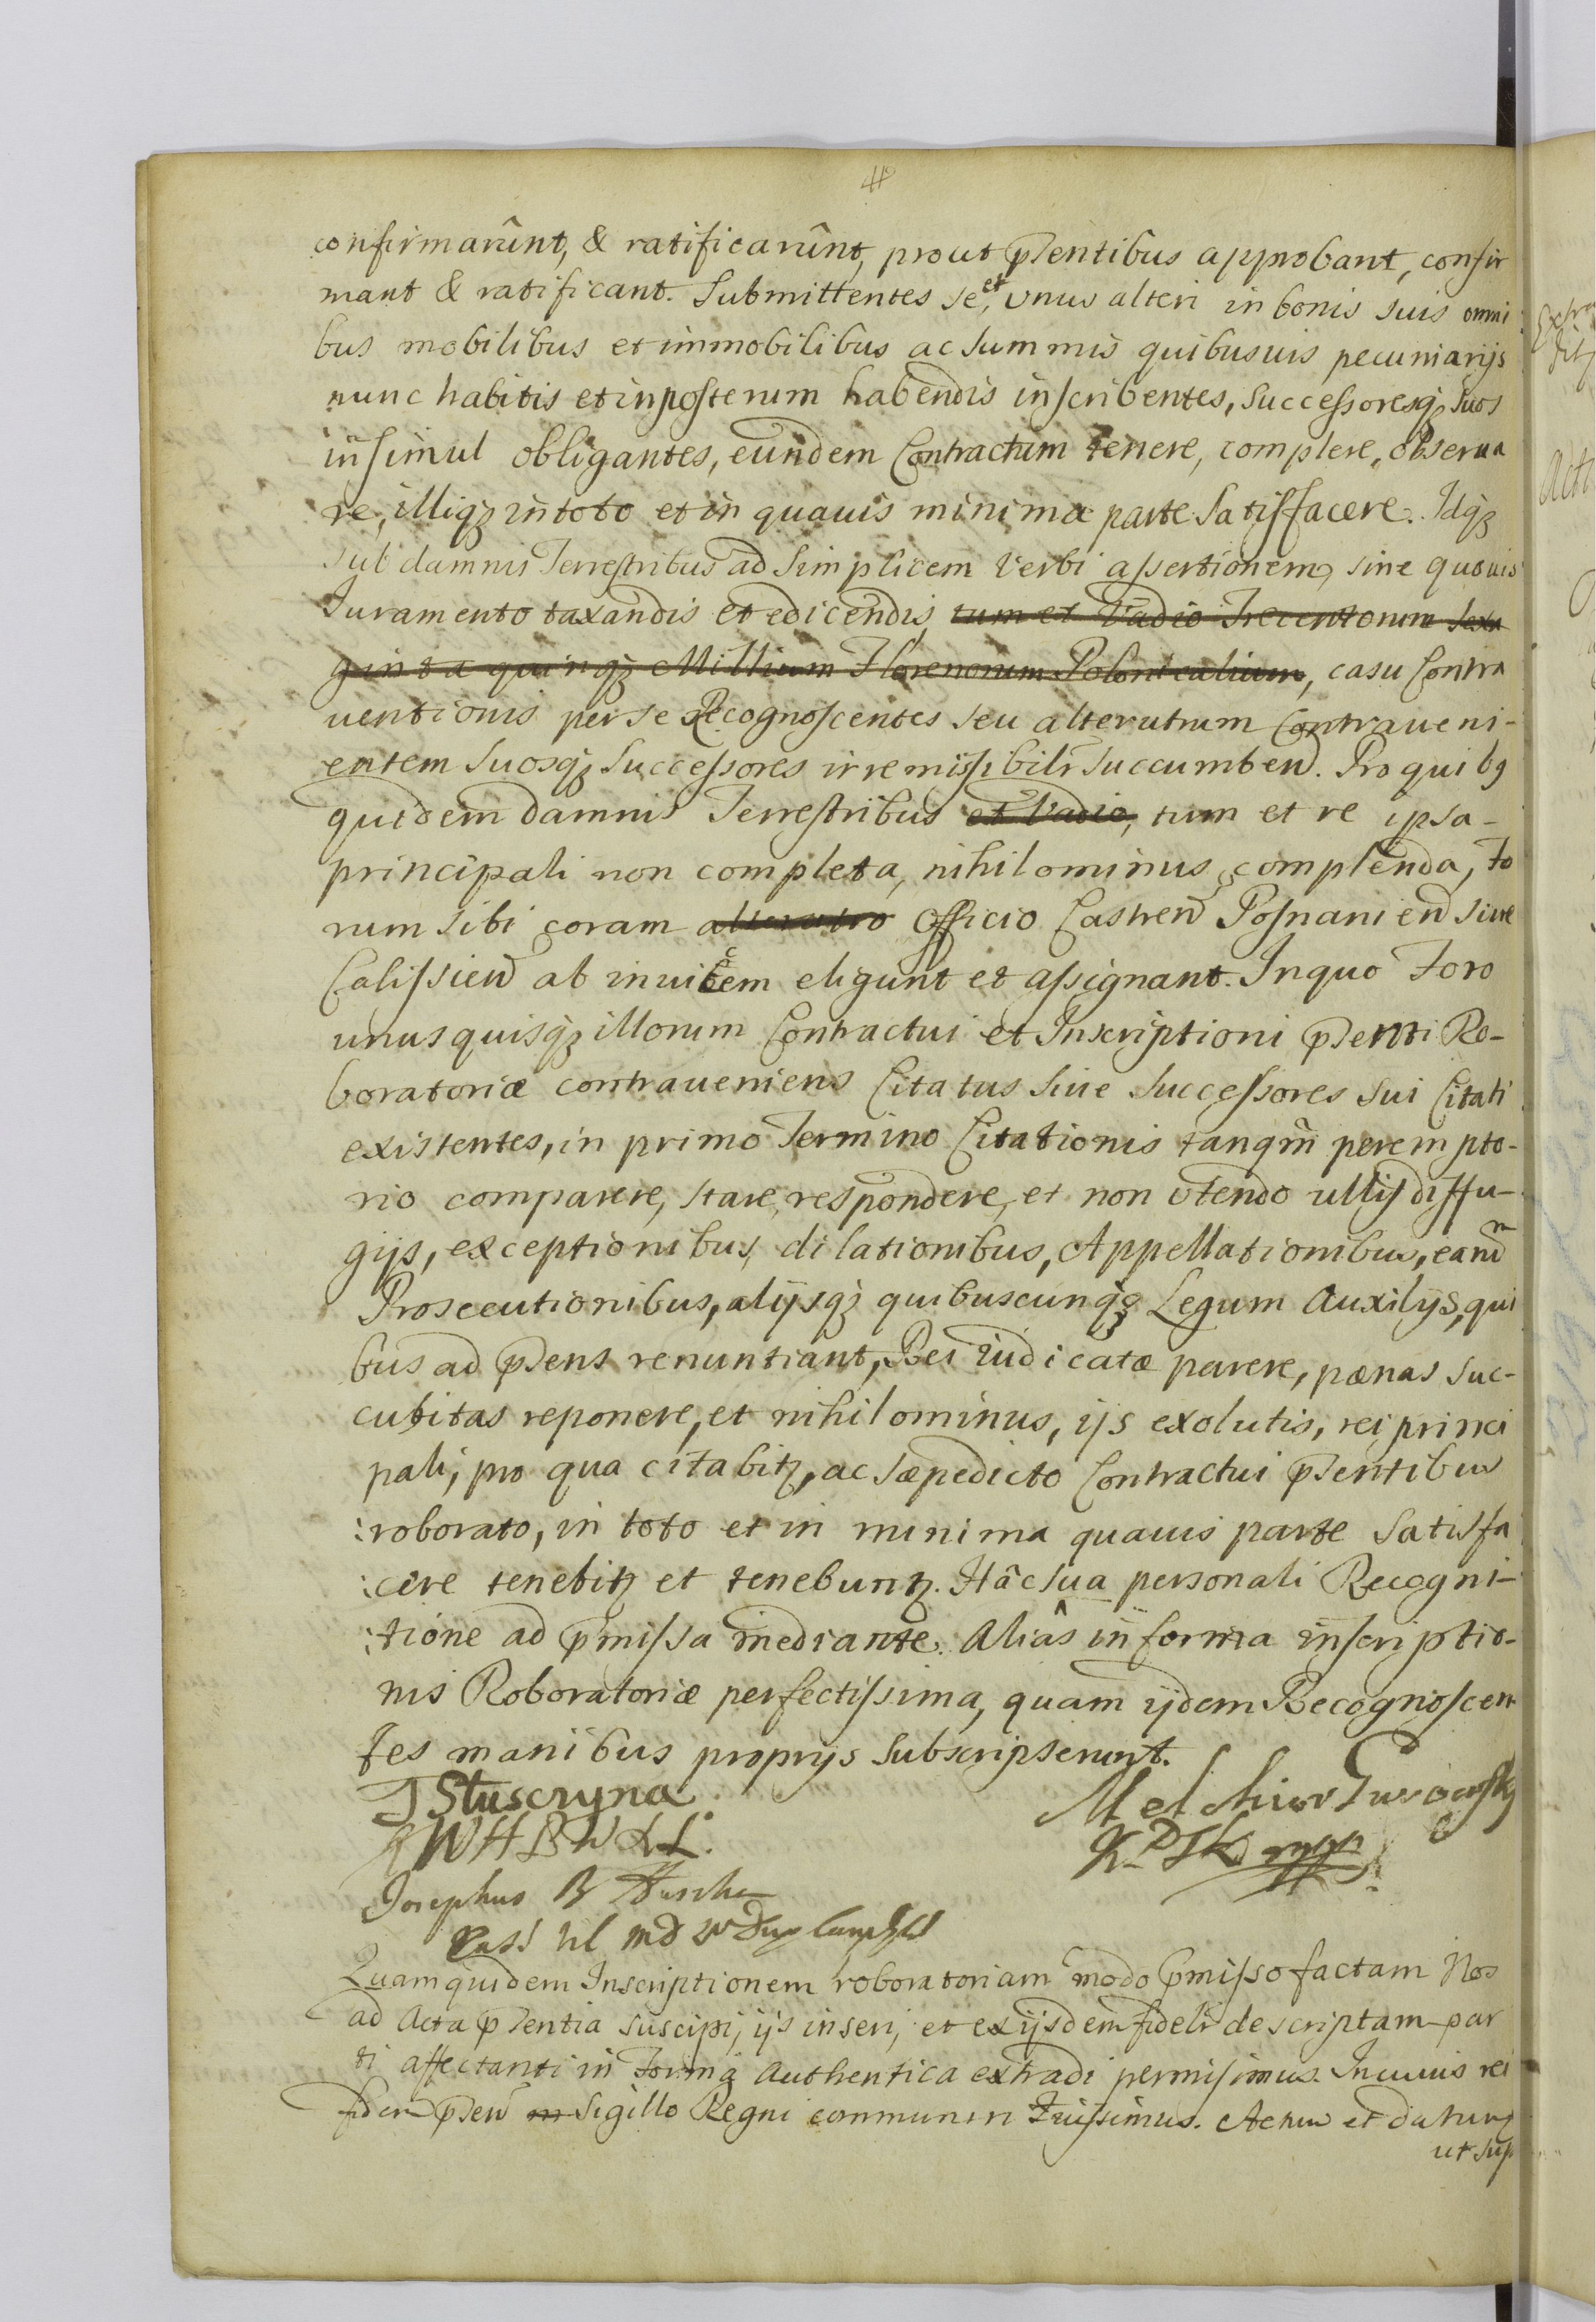 confirmarûnt, & ratificarûnt, prout pñtentibus approbant, confir
mant & ratificant. Submittentes se et, unus alteri in bonis suis omni
bus mobilibus et immobilibus ac summis quibusuis pecuniarijs
nunc habitis et in posterum habendis inscribentes, Successoresq; Suos
insimul obligantes, eundem Contractum tenere, complere, obserua
re, illiq; in toto et in quauis minima parte Satisfacere. Idq;
sub damnis Terrestribus ad Simplicem Verbi assertionem, sine quouis
Iuramento taxandis et edicendis, tum et Vadio Trecentorum Sexa
ginta quinq; Millium Florenorum Polonicalium, casu Contra
uentionis per se Recognoscentes seu alterutrum Contraueni-
entem Suosq; Successores irremissibilr Succumbend. Pro quibq
quidem damnis Terrestribus et Vadio, tum et re ipsa-
principali non completa, nihilominus complenda, fo
rum sibi coram alterutro Officio Castren Posnanien siue
Calissien ab inuicem eligunt et assignant. In quo Foro
unusquisq; illorum Contractui et Inscriptioni pñti Ro-
boratoriæ contraueniens Citatus siue Successores sui Citati
existentes, in primo Termino Citationis tanqm perempto-
rio comparere, stare, respondere, et non utendo ullis diffu-
gijs, exceptionibus, dilationibus, Appellationibus, earum
Prosecutionibus, alijsq; quibuscunq; Legum Auxilijs, qui
bus ad pñsens renuntiant, Rei iudicatæ parere, pænas suc-
cubitas reponere, et nihilominus, ijs exolutis, rei princi
pali, pro qua citabitr, ac sæpedicto Contractui pñtentibus
roborato, in toto et in minima quauis parte Satisfa
cere tenebitr et tenebuntr. Hâc sua personali Recogni-
tione ad pmissa mediante. Aliâs in forma inscriptio-
nis Roboratoriæ perfectissima, quam ijdem Recognoscen
tes manibus proprijs Subscripserunt.
Melchior Gurowsky
K P mpp
Josephus B
Quam quidem Inscriptionem roboratoriam modo pmisso factam Nos
ad Acta pñtentia suscipi, ijs inseri, et ex ijsdem fidelr descriptam par
ti affectanti in forma Authentica extradi permisimus. In cuius rei
fidem pñsen m Sigillo Regni communiri Iussimus. Actum et datum
ut sup